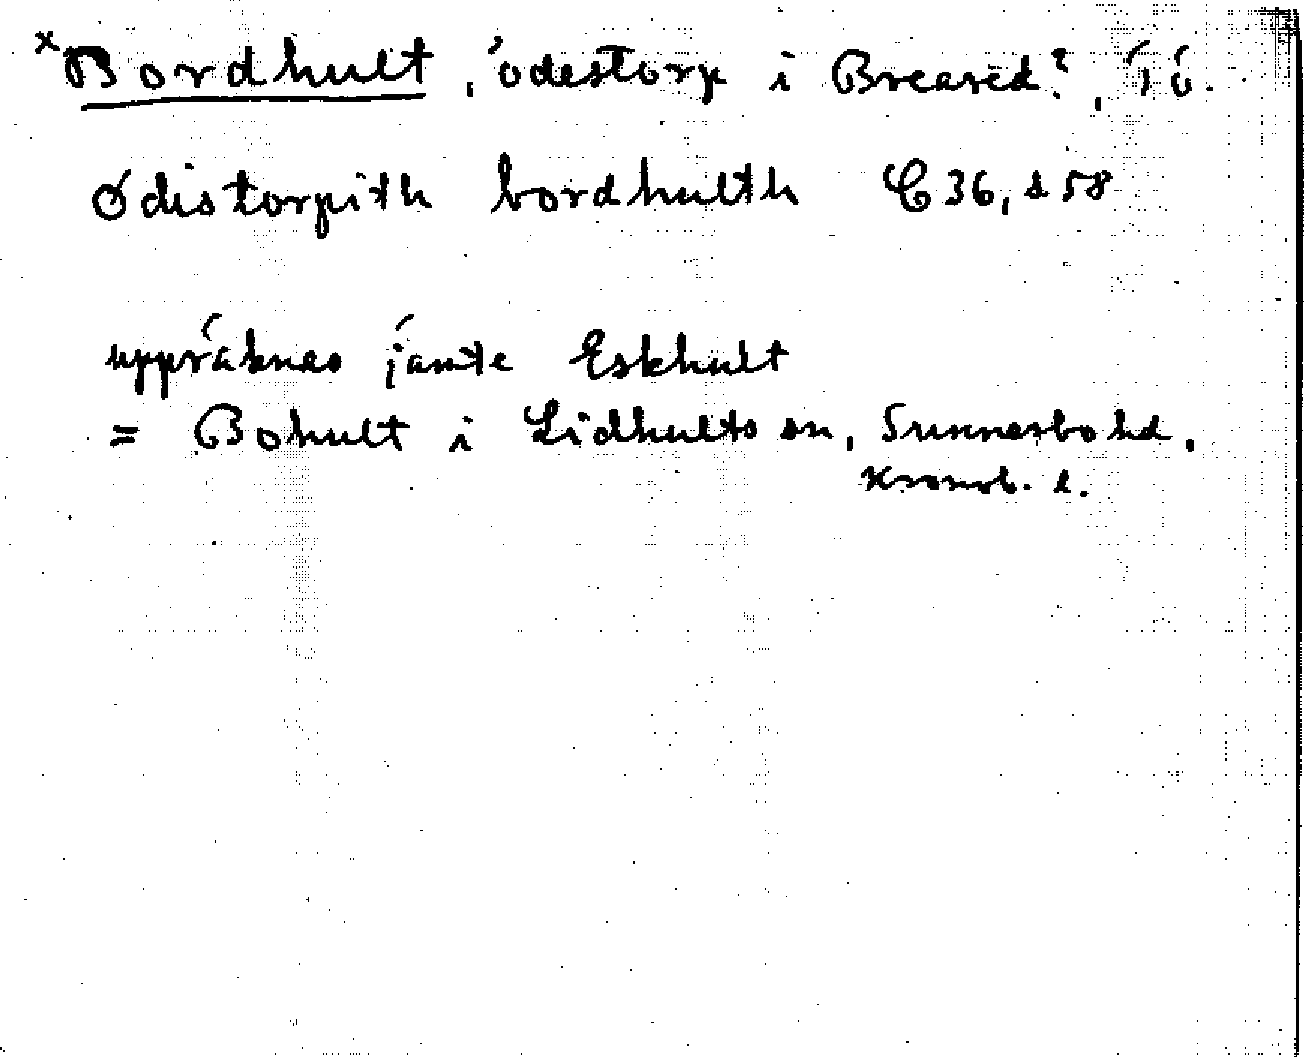 × Bordhult, ödestorp i Breared?, Tö.
Ødistorpith bordhulth C 36, s 58
uppräknas jämte Eskhult
= Bohult i Lidhults sn, Sunnerbo hd.
Kronob. l.